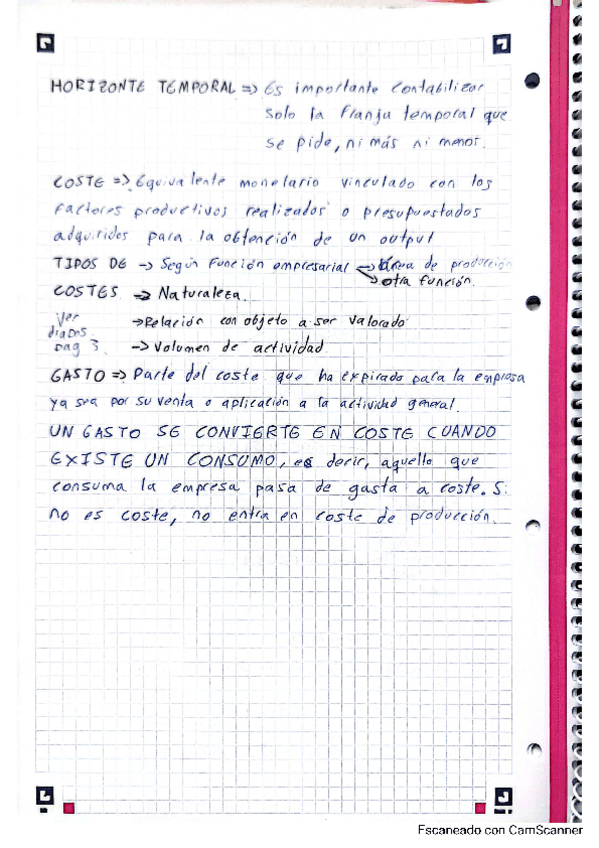 HORIZONTE TEMPORAL => Es importante contabilizar
solo la franja temporal que
se pide, ni más ni menos.
COSTE => Equivalente monetario vinculado con los
factores productivos realizados o presupuestados
adquiridos para la obtención de un output
TIPOS DE -> Según función empresarial -> área de producción
-> otra función.
COSTES -> Naturaleza.
Ver -> Relación con objeto a ser valorado
diapos
pag 3. -> Volumen de actividad
GASTO => Parte del coste que ha expirado para la empresa
ya sea por su venta o aplicación a la actividad general.
UN GASTO SE CONVIERTE EN COSTE CUANDO
EXISTE UN CONSUMO, es decir, aquello que
consuma la empresa pasa de gasta a coste. Si
no es coste, no entra en coste de producción.
Escaneado con CamScanner